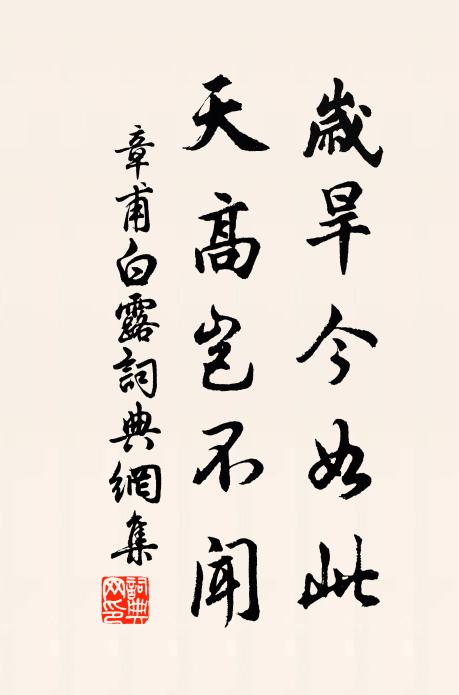 歲旱今如此
天高岂不闻
章甫白露詞典網集
詞典网印